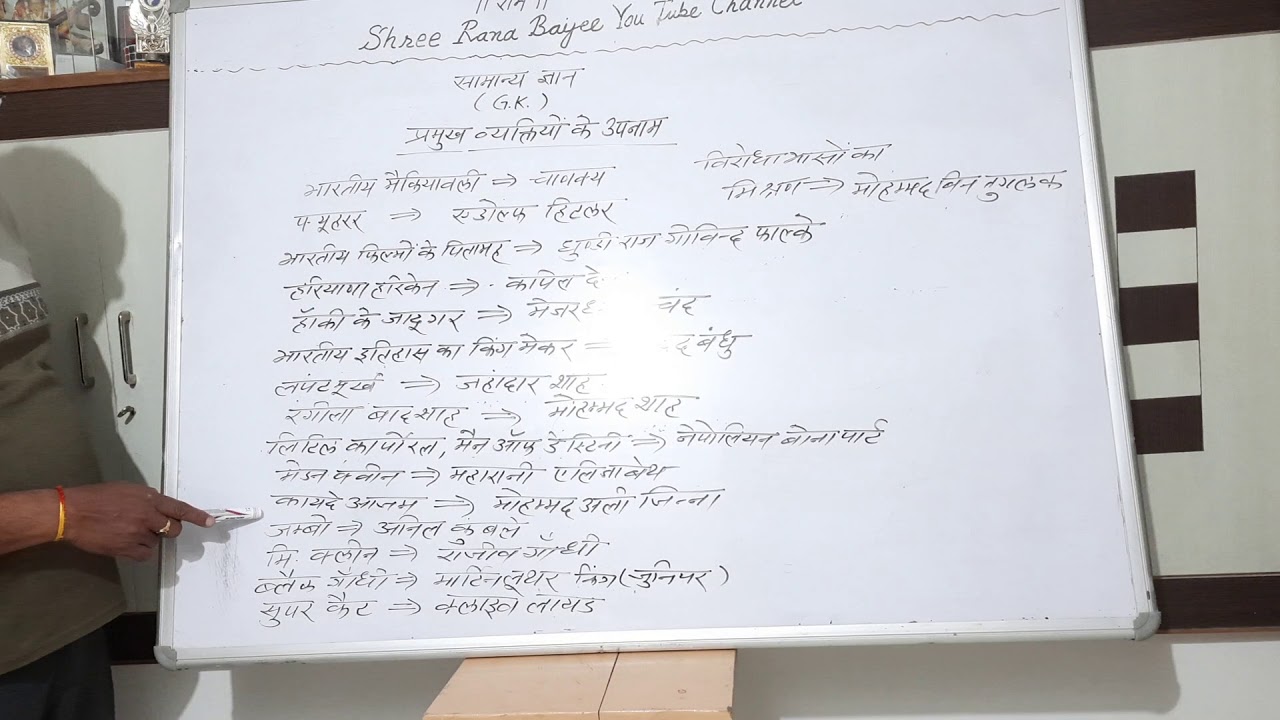 ॥ राम ॥
Shree Rana Baijee You Tube Channel
सामान्य ज्ञान
(G.K.)
प्रमुख व्यक्तियों के उपनाम
भारतीय मैकियावली ⇒ चाणक्य
फ्यूहरर ⇒ एडोल्फ हिटलर
भारतीय फिल्मों के पितामह ⇒ धुण्डी राज गोविन्द फाल्के
हरियाणा हरिकेन ⇒ कपिल दे
हॉकी के जादूगर ⇒ मेजर चंद
भारतीय इतिहास का किंग मेकर ⇒ बंधु
लंपट मूर्ख ⇒ जहांदार शाह
रंगीला बादशाह ⇒ मोहम्मद शाह
लिटिल कार्पोरल, मैन ऑफ डेस्टिनी ⇒ नेपोलियन बोनापार्ट
मेडन क्वीन ⇒ महारानी एलिजाबेथ
कायदे आजम ⇒ मोहम्मद अली जिन्ना
जम्बो ⇒ अनिल कुंबले
मि. क्लीन ⇒ राजीव गाँधी
ब्लैक गाँधी ⇒ मार्टिन लूथर किंग (जुनियर)
सुपर कैट ⇒ क्लाइव लायड
विरोधाभासों का
मिश्रण ⇒ मोहम्मद बिन तुगलक